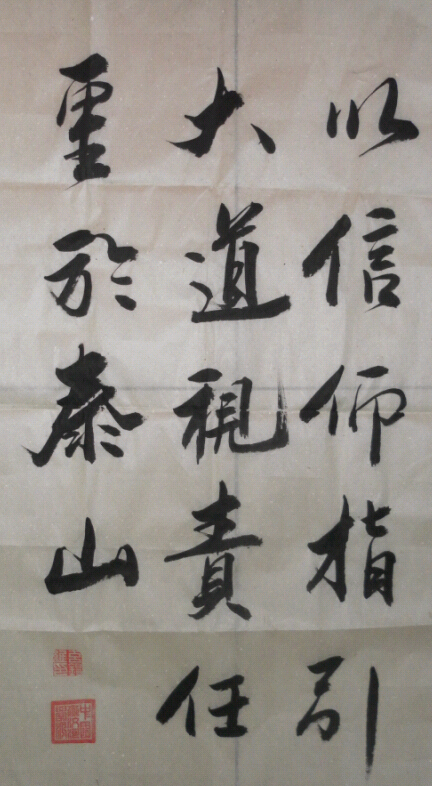 以信仰指引
大道視責任
重於泰山